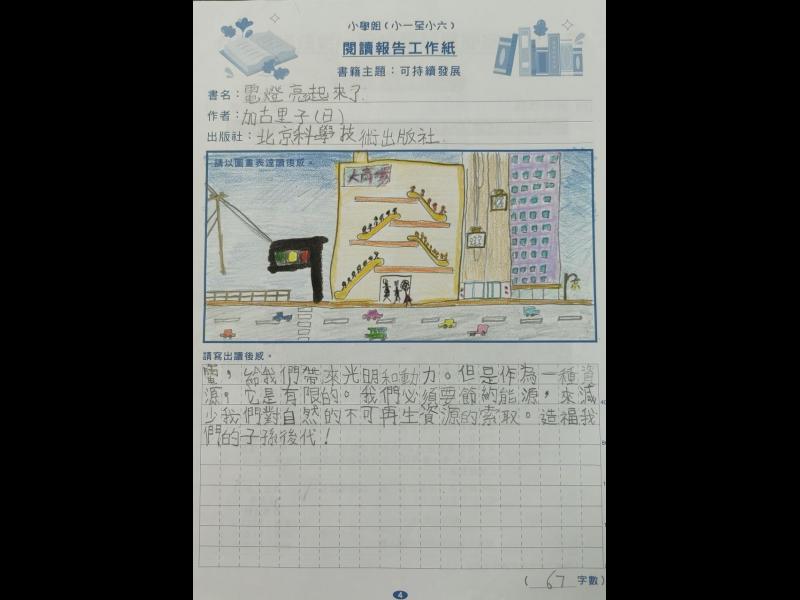 小學組(小一至小六)
閱讀報告工作紙
書籍主題：可持續發展
書名：電燈亮起來了
作者：加古里子(日)
出版社：北京科學技術出版社
請以圖畫表達讀後感。
大商場
請寫出讀後感。
電，給我們帶來光明和動力。但是作為一種資
源，它是有限的。我們必須要節約能源，來減
少我們對自然的不可再生資源的索取。造福我
們的子孫後代！
(67字數)
4